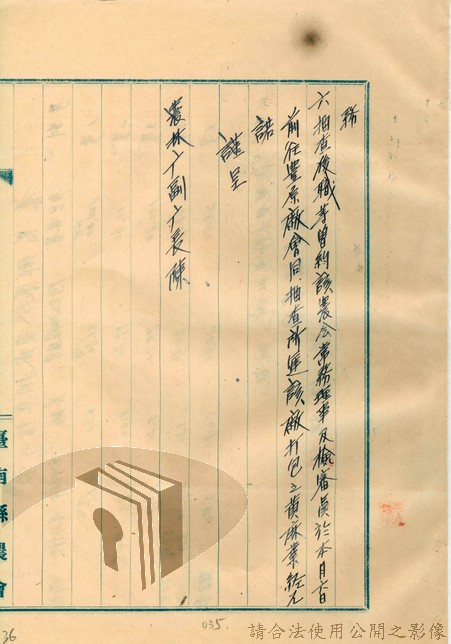 務
六抽查後職等曾約該農会常務理事及檢審員於本月六日
前往豐原廠會同抽查所運該廠打包之黃麻業經允
諾
謹呈
農林厅副厅長陳
臺南縣農會
035.
36
請合法使用公開之影像